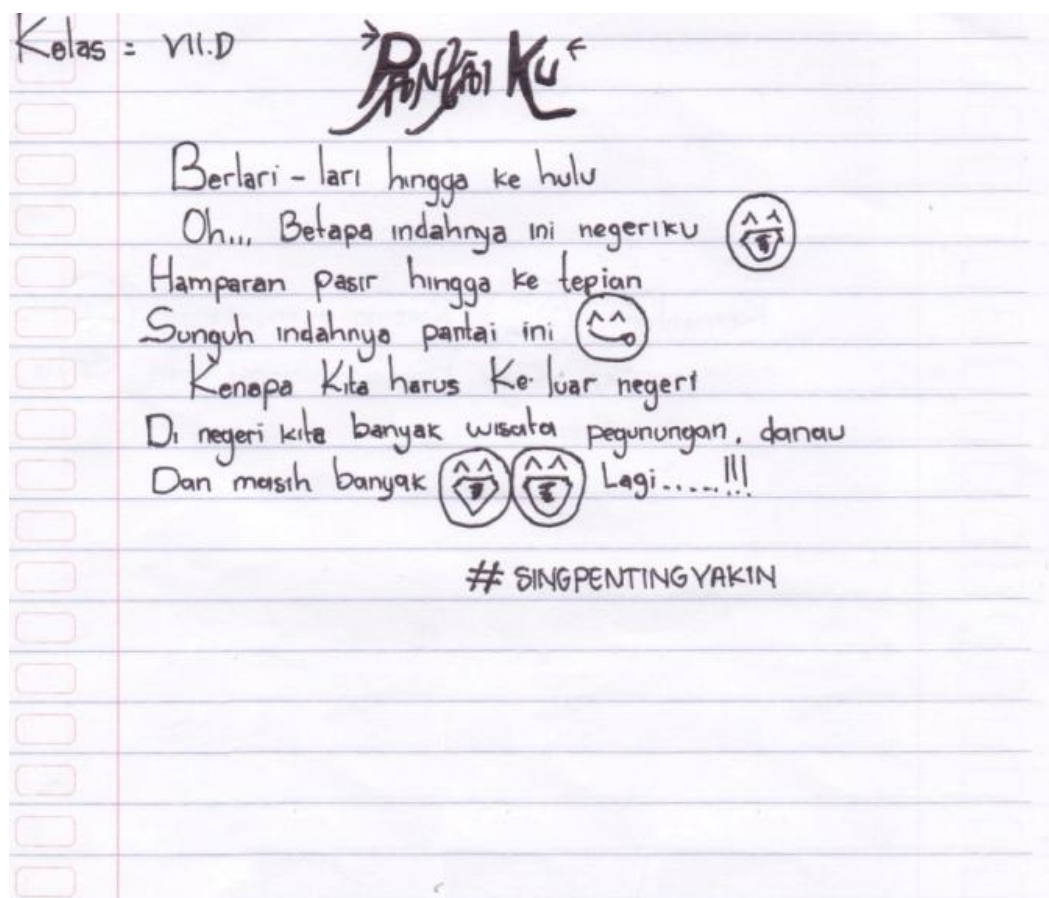 Kelas = VII.D
Pantai Ku
Berlari - lari hingga ke hulu
Oh,,, Betapa indahnya ini negeriku
Hamparan pasir hingga ke tepian
Sunguh indahnya pantai ini
Kenapa Kita harus Ke luar negeri
Di negeri kita banyak wisata pegunungan, danau
Dan masih banyak Lagi.....!!!
# SINGPENTINGYAKIN